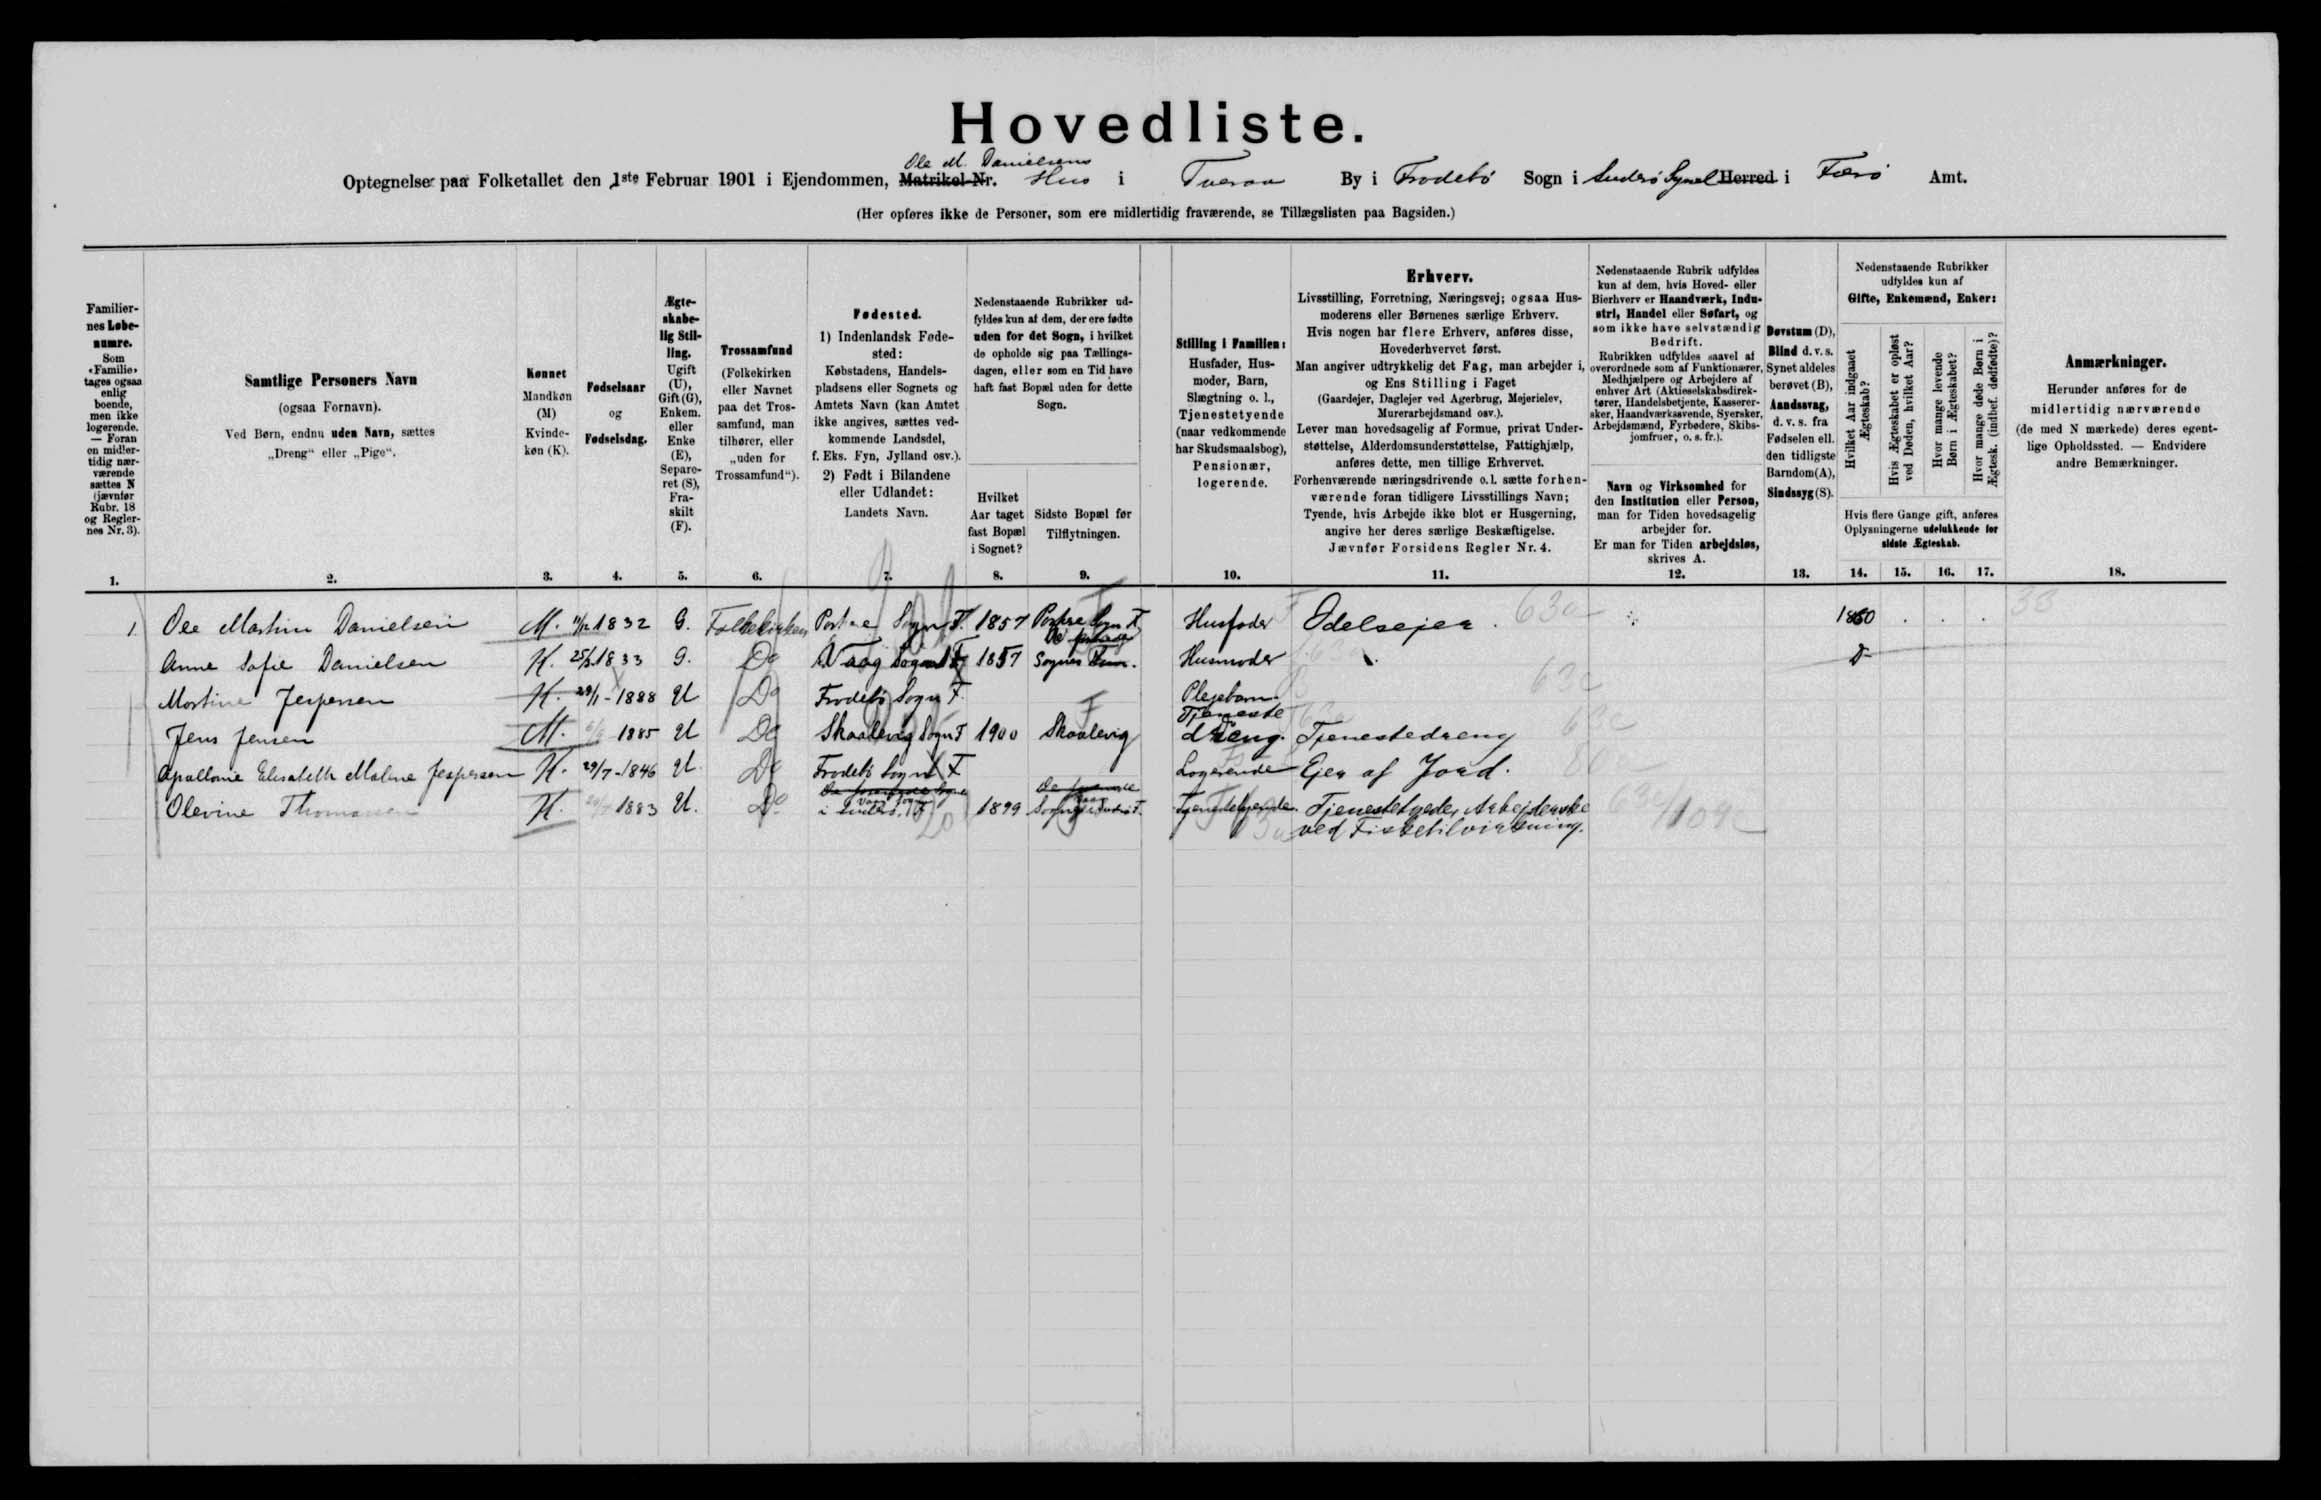 Hovedliste.
Ole M. Danielsens
Optegnelser paa Folketallet den 1ste Februar 1901 i Ejendommen, Matrikel-Nr. Hus i Tveraa By i Frodebö Sogn i Suderö Syssel Herred i Færö Amt.
(Her opføres ikke de Personer, som ere midlertidig fraværende, se Tillægslisten paa Bagsiden.)
Familiernes Løbenumre.
Som «Familie» tages ogsaa enlig boende, men ikke logerende. — Foran en midlertidig nærværende sættes N (jævnfør Rubr. 18 og Reglernes Nr. 3).
1.
Samtlige Personers Navn
(ogsaa Fornavn).
Ved Børn, endnu uden Navn, sættes
„Dreng" eller „Pige".
2.
Kønnet
Mandkøn
(M)
Kvindekøn (K).
3.
Fødselsaar
og
Fødselsdag.
4.
Ægteskabelig Stilling.
Ugift (U), Gift (G), Enkem. eller Enke (E), Separeret (S), Fraskilt (F).
5.
Trossamfund
(Folkekirken eller Navnet paa det Trossamfund, man tilhører, eller „uden for Trossamfund").
6.
Fødested.
1) Indenlandsk Fødested:
Købstadens, Handelspladsens eller Sognets og Amtets Navn (kan Amtet ikke angives, sættes vedkommende Landsdel, f. Eks. Fyn, Jylland osv.).
2) Født i Bilandene eller Udlandet:
Landets Navn.
7.
Nedenstaaende Rubrikker udfyldes kun af dem, der ere fødte uden for det Sogn, i hvilket de opholde sig paa Tællingsdagen, eller som en Tid have haft fast Bopæl uden for dette Sogn.
Hvilket Aar taget fast Bopæl i Sognet?
8.
Sidste Bopæl før Tilflytningen.
9.
Stilling i Familien:
Husfader, Husmoder, Barn, Slægtning o. l., Tjenestetyende (naar vedkommende har Skudsmaalsbog), Pensionær, logerende.
10.
Erhverv.
Livsstilling, Forretning, Næringsvej; ogsaa Husmoderens eller Børnenes særlige Erhverv.
Hvis nogen har flere Erhverv, anføres disse, Hovederhvervet først.
Man angiver udtrykkelig det Fag, man arbejder i, og Ens Stilling i Faget
(Gaardejer, Daglejer ved Agerbrug, Mejerielev, Murerarbejdsmand osv.).
Lever man hovedsagelig af Formue, privat Understøttelse, Alderdomsunderstøttelse, Fattighjælp, anføres dette, men tillige Erhvervet.
Forhenværende næringsdrivende o. l. sætte forhenværende foran tidligere Livsstillings Navn;
Tyende, hvis Arbejde ikke blot er Husgerning, angive her deres særlige Beskæftigelse.
Jævnfør Forsidens Regler Nr. 4.
11.
Nedenstaaende Rubrik udfyldes kun af dem, hvis Hoved- eller Bierhverv er Haandværk, Industri, Handel eller Søfart, og som ikke have selvstændig Bedrift.
Rubrikken udfyldes saavel af overordnede som af Funktionærer, Medhjælpere og Arbejdere af enhver Art (Aktieselskabsdirektører, Handelsbetjente, Kasserersker, Haandværkssvende, Syersker, Arbejdsmænd, Fyrbødere, Skibsjomfruer, o. s. fr.).
Navn og Virksomhed for den Institution eller Person, man for Tiden hovedsagelig arbejder for.
Er man for Tiden arbejdsløs, skrives A.
12.
Døvstum (D), Blind d. v. s. Synet aldeles berøvet (B), Aandssvag, d. v. s. fra Fødselen ell. den tidligste Barndom (A), Sindssyg (S).
13.
Nedenstaaende Rubrikker udfyldes kun af
Gifte, Enkemænd, Enker:
Hvilket Aar indgaaet Ægteskab?
Hvis Ægteskabet er opløst ved Døden, hvilket Aar?
Hvor mange levende Børn i Ægteskabet?
Hvor mange døde Børn i Ægtesk. (indbef. dødfødte)?
Hvis flere Gange gift, anføres Oplysningerne udelukkende for sidste Ægteskab.
14. 15. 16. 17.
Anmærkninger.
Herunder anføres for de midlertidig nærværende (de med N mærkede) deres egentlige Opholdssted. — Endvidere andre Bemærkninger.
18.
1. Ole Martin Danielsen M. 11/12 1832 G. Folkekirken Porkere Sogn F. 1857 Porkere Sogn F. Husfader Odelsejer. 63a 1860
Anne Sofie Danielsen K. 25/3 1833 G. Do Vaag Sogn F 1857 Sognes Husmoder Do
Martine Jespersen K. 29/1 - 1888 U Do Frodebö Sogn F. Plejebarn 63c
Jens Jensen M. 1885 U Do Skaalevig Sogn F 1900 Skaalevig Tjeneste dreng. Tjenestedreng 63c
Apallonie Elisabeth Malene Jespersen K. 29/7 - 1846 U. Do Frodebö Sogn F Logerende Ejer af Jord.
Olevine Thomassen K. 1883 U. Do Vaag Sogn i Suderö, F 1899 Sogn Suderö F. Tjenestetyende. Tjenestetyende, Arbejderske
ved Fisketilvirkning.